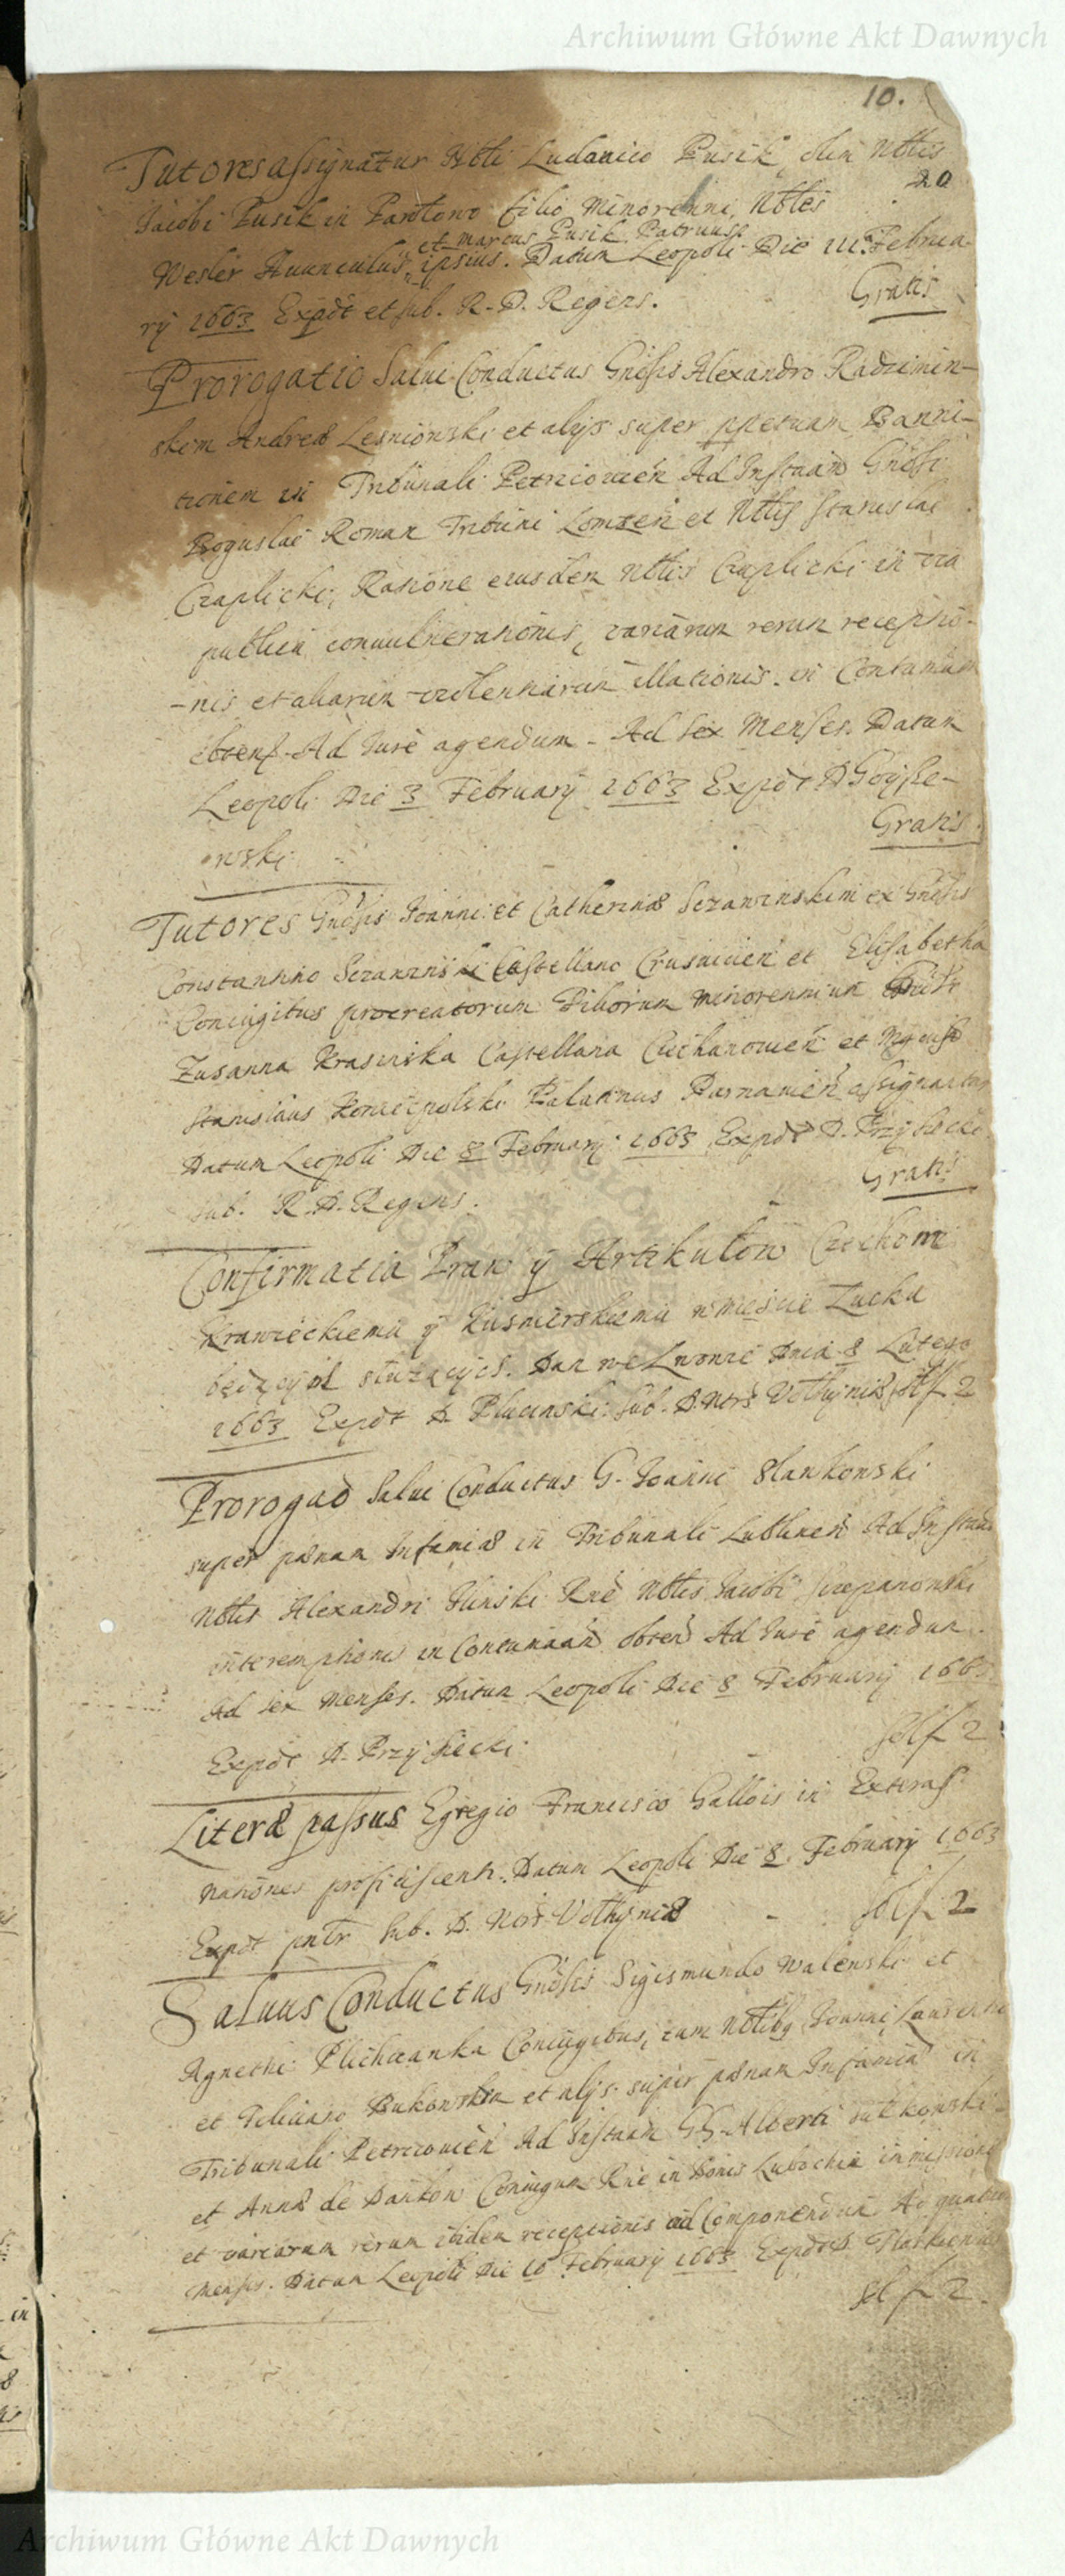 Archiwum Główne Akt Dawnych
10.
Tutores assignatur Nbli Ludovico Pusik, olim Nblis
20
Jacobi Pusik in Pantowo filio Minorenni, Nbles
et Marcus Pusik Patruus
Wesler Auunculus, ipsius. Datum Leopoli Die III. Februa-
rÿ 1663 Expdt et sub. R. D. Regens.
Gratis
Prorogatio Salui Conductus Gnosis Alexandro Radzimin-
skem Andreæ Lesniowski et alÿs super ppetuam Banni-
tionem in Tribunali Petricouien Ad Instnam Gnosi
Boguslai Roman Tribuni Lomzen et Nblis Stanislai
Czaplicki, Ratione eiusdem Nblis Czaplicki in via
publica conuulnerationis, variarum rerum receptio-
-nis et aliarum violentiarum illationis. in Contumam
obtenf. Ad Iure agendum. Ad sex Menses. Datum
Leopoli Die 3 Februarÿ 1663 Expdt D Goÿske-
wski
Gratis
Tutores Gnosis Joanni et Catherinæ Sczawinskim ex Gnosis
Constantino Sczawinski Castellano Crusuicien et Elisabetha
Coniugibus procreatorum Filiorum minorennium
Zusanna Krasinska Castellana Ciechanouien et Mgcus
Stanislaus Koniecpolski Palatinus Parnauien assignantur
Datum Leopoli Die 8 Februarÿ 1663 Expdt D. Przÿsiecki
sub. R. D. Regens.
Gratis
Confirmatia Praw ÿ Artikulow Czechom
Krawieckiemu ÿ Kusnierskiemu w miescie Lucku
będący słuzących. Dan we Lwowie Dnia 8 Lutego
1663 Expdt D. Plucinski. sub. D. Nors Volhÿniæ sol f 2
Prorogao Salui Conductus G. Joanni Slankowski
super pœnam Infamiæ in Tribunali Lublinen Ad Instnam
Nblis Alexandri Ilinski Rne Nblis Jacobi Szczepanowski
interemptionis in Contumam obten Ad Iure agendum.
Ad sex Menses. Datum Leopoli Die 8 Februarÿ 1663
Expdt D. Przÿsiecki
sol f 2
Literæ passus Egregio Francisco Gallois in Exteras
Nationes proficiscenti. Datum Leopoli Die 8. Februarÿ 1663
Expdt pntr sub. D. Nors Volhÿniæ - sol f 2
Saluus Conductus Gnosis Sigismundo Walenski et
Agneti Plichcianka Coniugibus, tum Nblibg Joanni, Laurentio
et Feliciano Bukowskim et alÿs super pœnam Infamiæ in
Tribunali Petricouien Ad Instnam GG. Alberti Sulkowski
et Annæ de Dankow Coniugum Rne in Bonis Lubochin inmissione
et variarum rerum ibidem receptionis ad Componendum Ad quatuor
menses. Datum Leopoli Die 10 Februarÿ 1663 Expdt D.
sol f 2.
Archiwum Główne Akt Dawnych